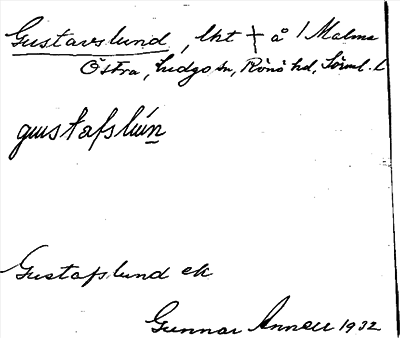 Gustavslund, lht † å 1 Malma
Östra, Ludgo sn, Rönö hd, Sörml. l
gustafslún
Gustafslund ek
Gunnar Annell 1932